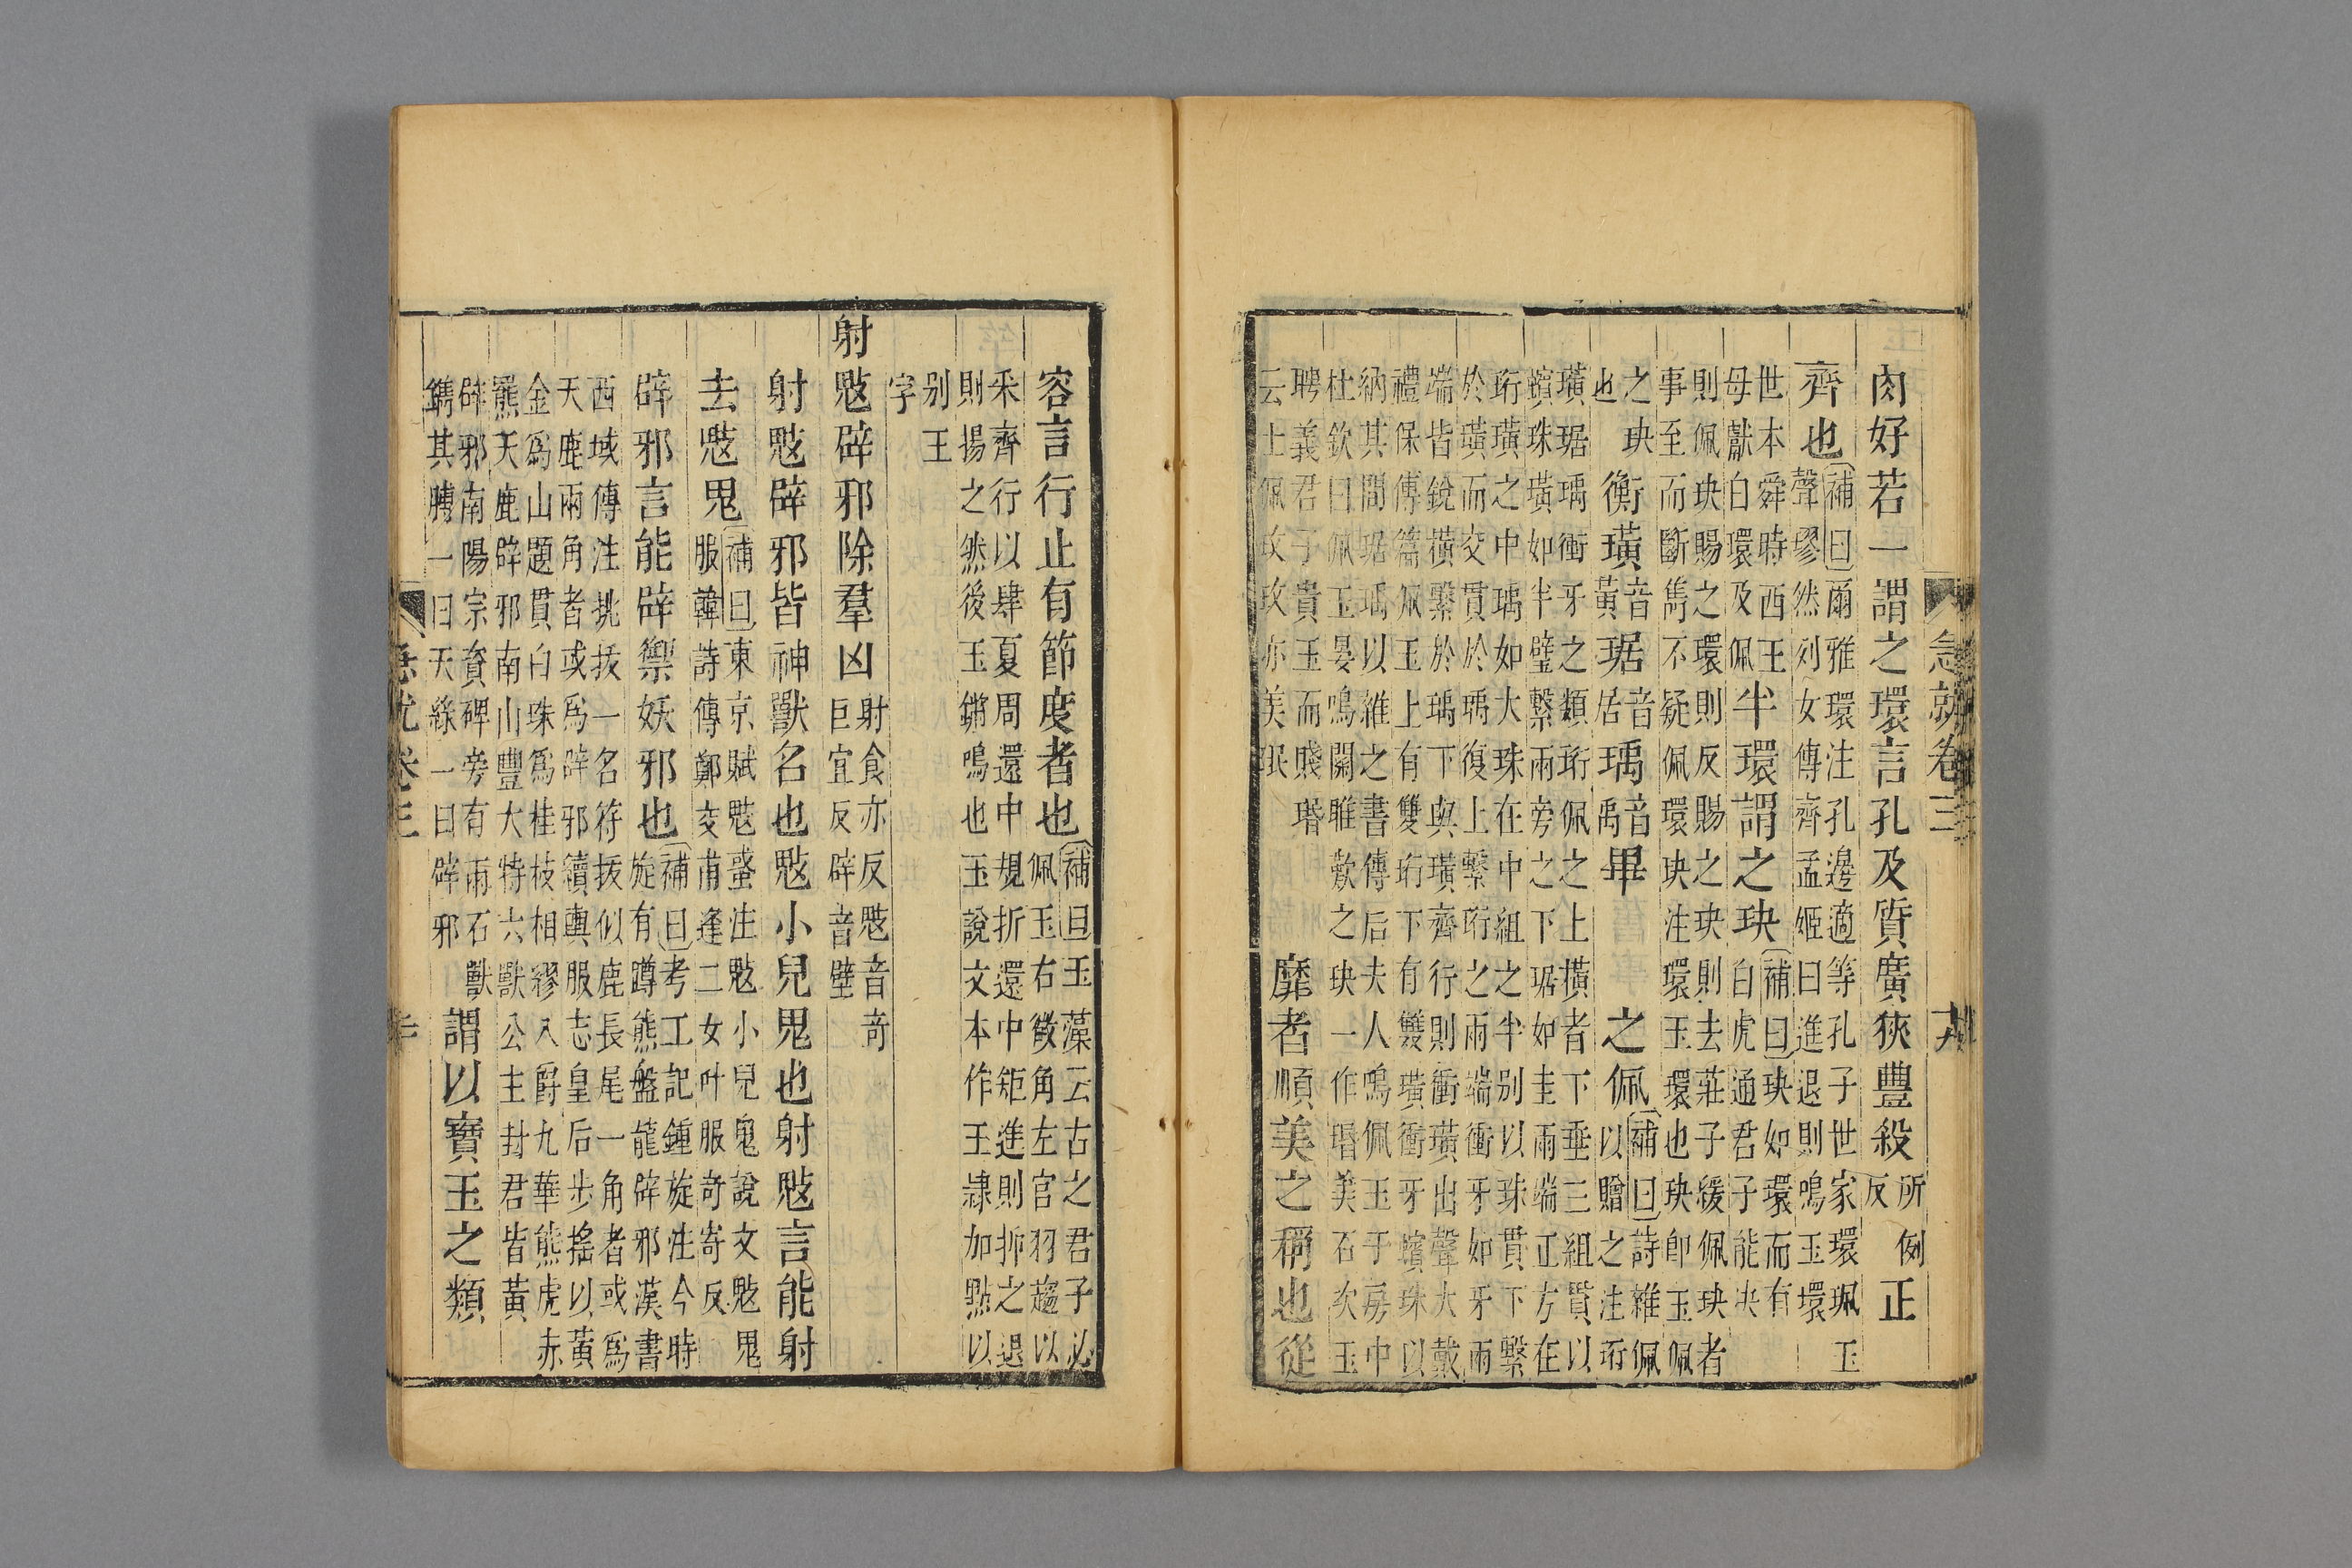 急就卷三 十九
肉好若一謂之環言孔及質廣狹豐殺
所例
反
正
齊也
補曰爾雅環注孔邊適等孔子世家環珮玉
聲璆然列女傳齊孟姬曰進退則鳴玉環
世本舜時西王
母獻白環及佩
半環謂之玦
補曰玦如環而有
白虎通君子能決
則佩玦賜之環則反賜之玦則去莊子緩佩玦者
事至而斷雋不疑佩環玦注環玉環也玦即玉佩
之玦
也
衡璜
音
黃
琚
音
居
瑀
音
禹
畢 之佩
補曰詩雜佩
以贈之注珩
璜琚瑀衝牙之類珩佩之上橫者下垂三組貫以
蠙珠璜如半璧繫兩旁之下琚如圭兩端正方在
珩璜之中瑀如大珠在中組之半别以珠貫下繫
於璜而交貫於瑀復上繫珩之兩端衝牙如牙兩
端皆銳橫繫於瑀下與璜齊行則衝璜出聲大戴
禮保傅篇佩玉上有雙珩下有雙璜衝牙蠙珠以
納其間琚瑀以雜之書傳后夫人鳴佩玉于房中
杜欽曰佩玉晏鳴關雎歎之玦一作瑉美石次玉
聘義君子貴玉而賤瑉
云士佩玫玫亦美珉
靡者順美之稱也從
容言行止有節度者也
補曰玉藻云古之君子必
佩玉右徵角左宮羽趨以
采齊行以肆夏周還中規折還中矩進則揖之退
則揚之然後玉鏘鳴也玉說文本作王隸加點以
别王
字
射鬾辟邪除羣凶
射食亦反鬾音奇
巨宜反辟音壁
射鬾辟邪皆神獸名也鬾小兒鬼也射鬾言能射
去鬾鬼
補曰東京賦鬾蜮注鬾小兒鬼說文鬾鬼
服韓詩傳鄭交甫逢二女叶服奇寄反
辟邪言能辟禦妖邪也
補曰考工記鍾旋注今時
旋有蹲熊盤龍辟邪漢書
西域傳注挑拔一名符拔似鹿長尾一角者或為
天鹿兩角者或為辟邪續輿服志皇后步搖以黃
金為山題貫白珠為桂枝相繆八爵九華熊虎赤
羆天鹿辟邪南山豐大特六獸公主封君皆黃
辟邪南陽宗資碑旁有兩石獸
鐫其膊一曰天祿一曰辟邪
謂以寶玉之類
急就卷三